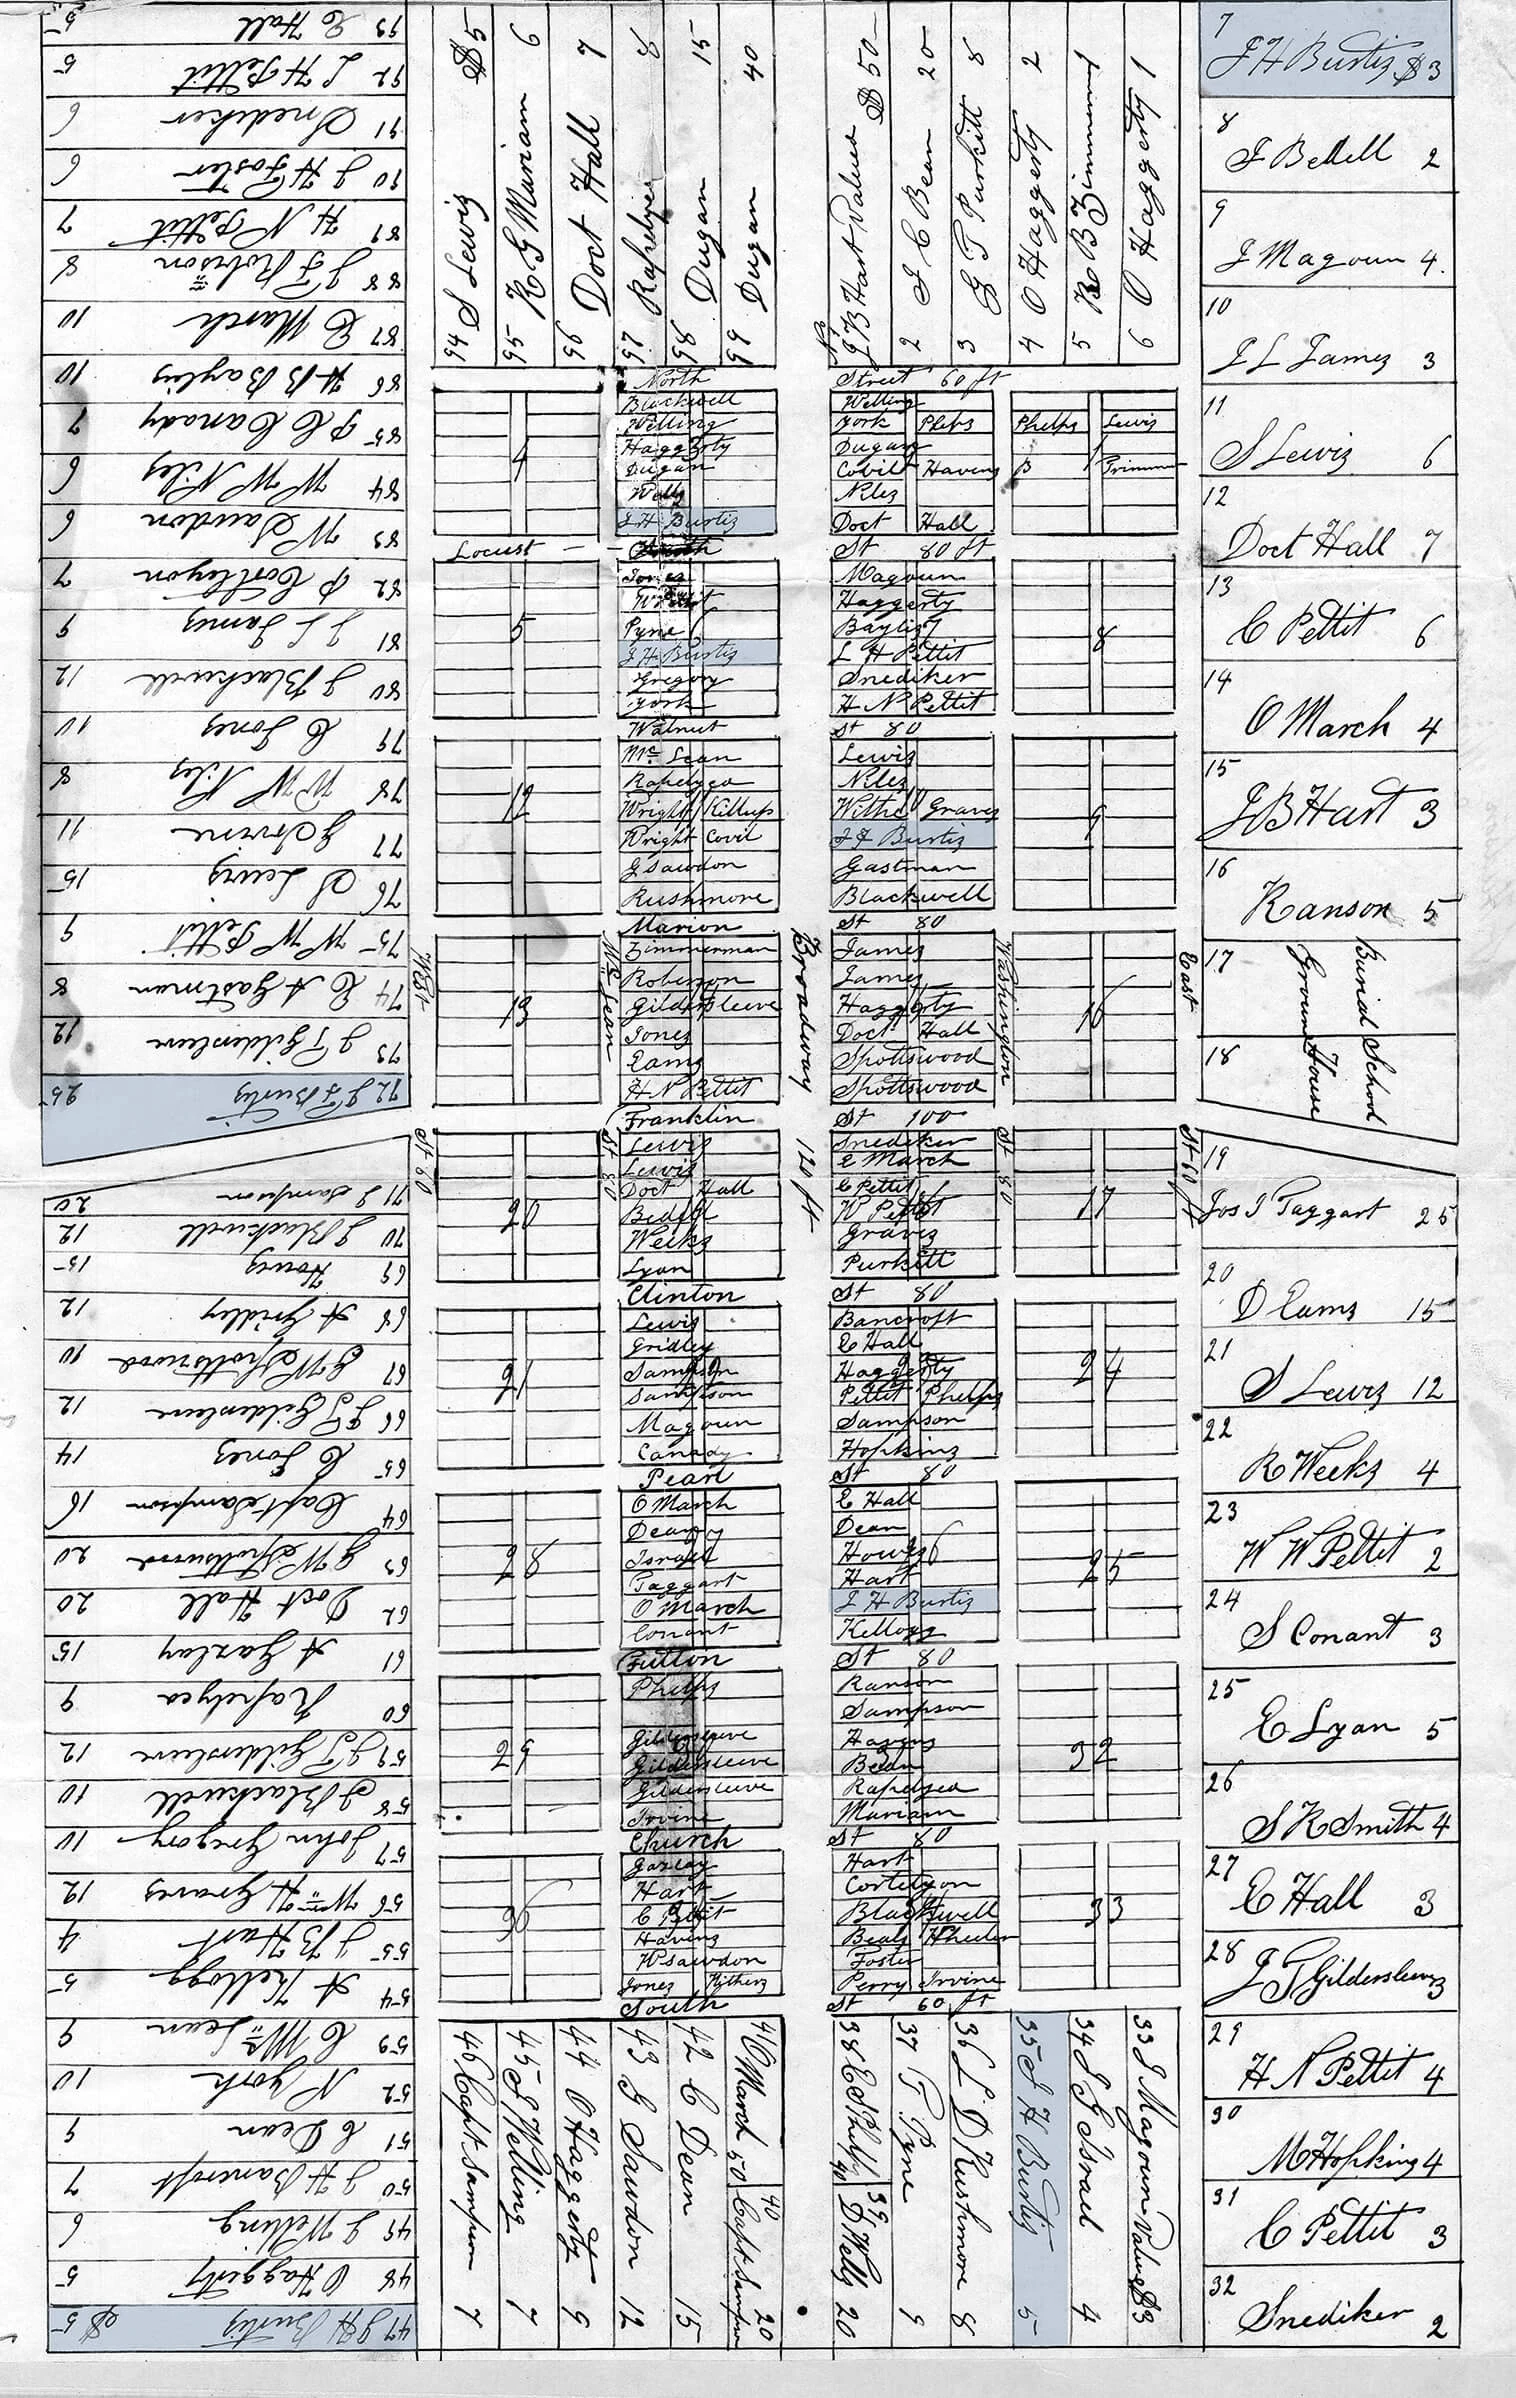 94 S Lewis $5
95 R G Mariam 6
96 Doct Hall 7
97 Rapelyea 8
98 Dugan 15
99 Dugan 40
No
J B Hart Value $50
2 J C Bean 20
3 G T Purkitt 8
4 O Haggerty 2
5 R B Zimmerman 1
6 O Haggerty 1
7
J H Burtis $3
8
J Bedell 2
9
J Magoun 4.
10
J L James 3
11
S Lewis 6
12
Doct Hall 7
13
C Pettit 6
14
O March 4
15
J B Hart 3
16
Ranson 5
17
Burial
Ground
18
School
House
19
Jos T Taggart 25
20
D Eams 15
21
S Lewis 12
22
R Weeks 4
23
W W Pettit 2
24
S Conant 3
25
E Lyan 5
26
S R Smith 4
27
E Hall 3
28
J T Gildersleeve 3
29
H N Pettit 4
30
M Hopkins 4
31
C Pettit 3
32
Snediker 2
33 J Magoun Value $3
34 J G Israel 4
35 J H Burtis 5
36 L D Rushmore 8
37 T Pyne 9
38 E S Phelps 40
39 D Wells 20
40 Capt Sampson 20
41 O March 50
42 C Dean 15
43 G Sawdon 12
44 O Haggerty 9
45 J Welling 7
46 Capt Sampson 7
47 J H Burtis $5
48 O Haggerty 5
49 J Welling 6
50 J H Bancroft 7
51 C Dean 9
52 N York 10
53 C Mc Lean 9
54 A Kellogg 5
55 J B Hart 4
56 Wm H Graves 12
57 John Gregory 10
58 J Blackwell 10
59 J T Gildersleeve 12
60 Rapelyea 9
61 A Gazlay 15
62 Doct Hall 20
63 G W Spottswood 20
64 Capt Sampson 16
65 C Jones 14
66 J T Gildersleeve 12
67 G W Spottswood 10
68 A Gridley 12
69 Howes 15
70 J Blackwell 12
71 J Sampson 20
72 J F Burtis 25
73 J T Gildersleeve 12
74 C A Gastman 8
75 W W Pettit 9
76 S Lewis 15
77 G Irvine 11
78 W W Niles 8
79 C Jones 10
80 J Blackwell 12
81 J L James 9
82 P Cortleyon 7
83 W Sawdon 6
84 W W Niles 6
85 P C Canady 7
86 H B Baylis 10
87 E March 10
88 J F Robison 8
89 H N Pettit 7
90 J H Foster 6
91 Snediker 6
92 L H Pettit 5
93 E Hall 5
North Street 60 ft
Blackwell
Welling
Haggerty
Dugan
Wells
J H Burtis
4
3
Welling
York Phelps
Dugan
Covil Havens
Niles
Doct Hall
Phelps Lewis
Locust St 80 ft
Jones
Pyne
J H Burtis
Gregory
York
5
Magoun
Haggerty
Baylis
L H Pettit
Snediker
H N Pettit
7
8
Walnut St 80
Mc Lean
Rapelyea
Wright Killups
Wright Covil
G Sawdon
Rushmore
12
Lewis
Niles
Graves
J F Burtis
Gastman
Blackwell
9
Marion St 80
Zimmerman
Robinson
Gildersleeve
Jones
Eams
H N Pettit
13
James
James
Haggerty
Doct Hall
Spottswood
Spottswood
16
Franklin St 100
Lewis
Lewis
Doct Hall
Bedell
Weeks
Lyan
20
Snediker
E March
C Pettit
W Pettit
Graves
Purkitt
17
Clinton St 80
Lewis
Gridley
Sampson
Sampson
Magoun
Canady
21
Bancroft
E Hall
Haggerty
Pettit Phelps
Sampson
Hopkins
24
Pearl St 80
O March
Dean
Israel
Taggart
O March
Conant
28
E Hall
Dean
Howes
Hart
J H Burtis
Kellogg
25
Fulton St 80
Phelps
Gildersleeve
Gildersleeve
Gildersleeve
Irvine
29
Ranson
Sampson
Havens
Bean
Rapelyea
Mariam
32
Church St 80
Gazlay
Hart
C Pettit
Havens
W Sawdon
Jones Withers
36
Hart
Cortelyon
Blackwell
Beals Wheeler
Foster
Perry Irvine
33
South St 60 ft
West St 60
Mc Lean St 80
Broadway 120 ft
Washington St 80
East St 60 ft